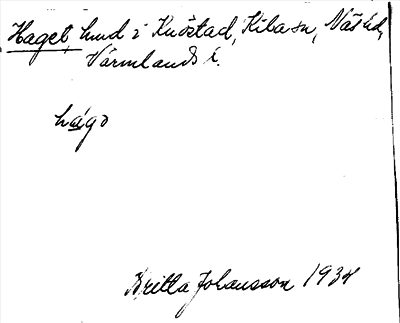 Haget, hund i Knöstad, Kila sn, Näs hd,
Värmlands l.
hago
Britta Johansson 1934